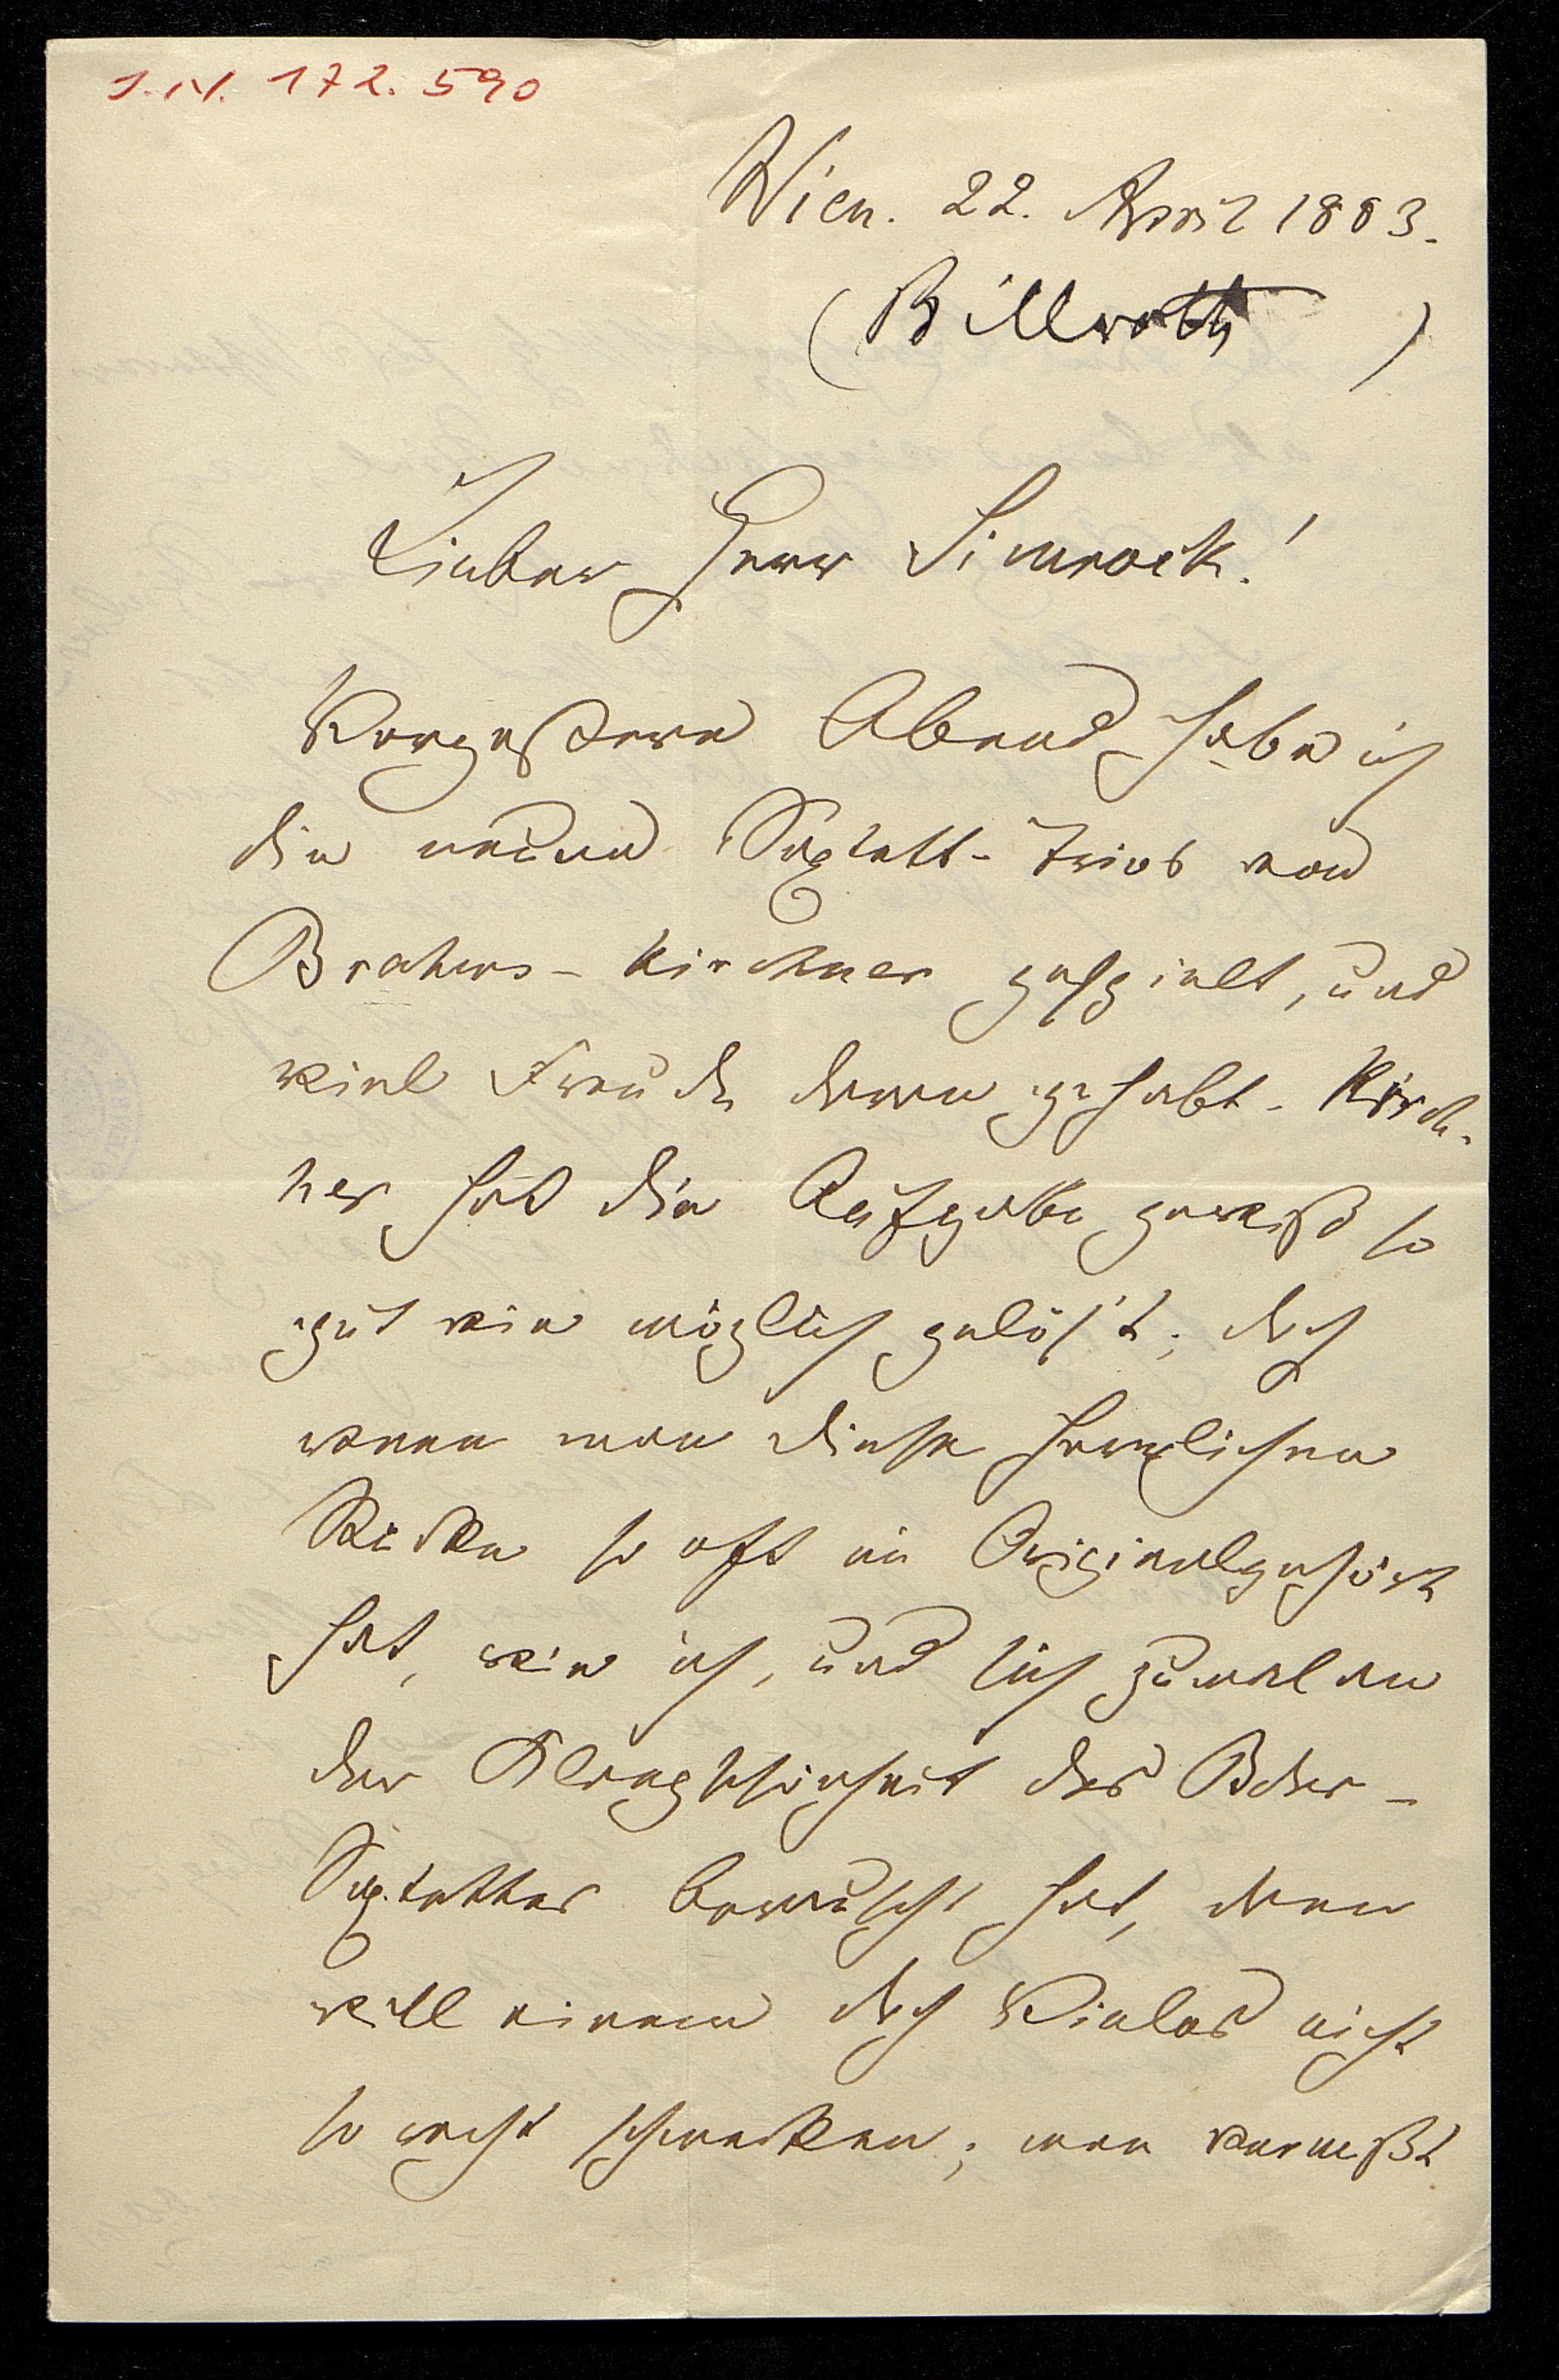 J.N. 172.590
Wien. 22. April 1883.
(Billroth)
Lieber Herr Simrock!
Vorgestern Abend habe ich
die neuen Sextett-Trios von
Brahms-Kirchner gespielt, und
viel Freude daran gehabt. Kirch-
ner hat die Aufgabe gewiß so
gut wie möglich gelöst; doch
wenn man diese herrlichen
Stücke so oft im Original gehört
hat, wie ich, und sich zumal an
der Klangschönheit des Bdur-
Sextettes berauscht hat, dann
will einem doch Vieles nicht
so recht schmecken; man vermißt